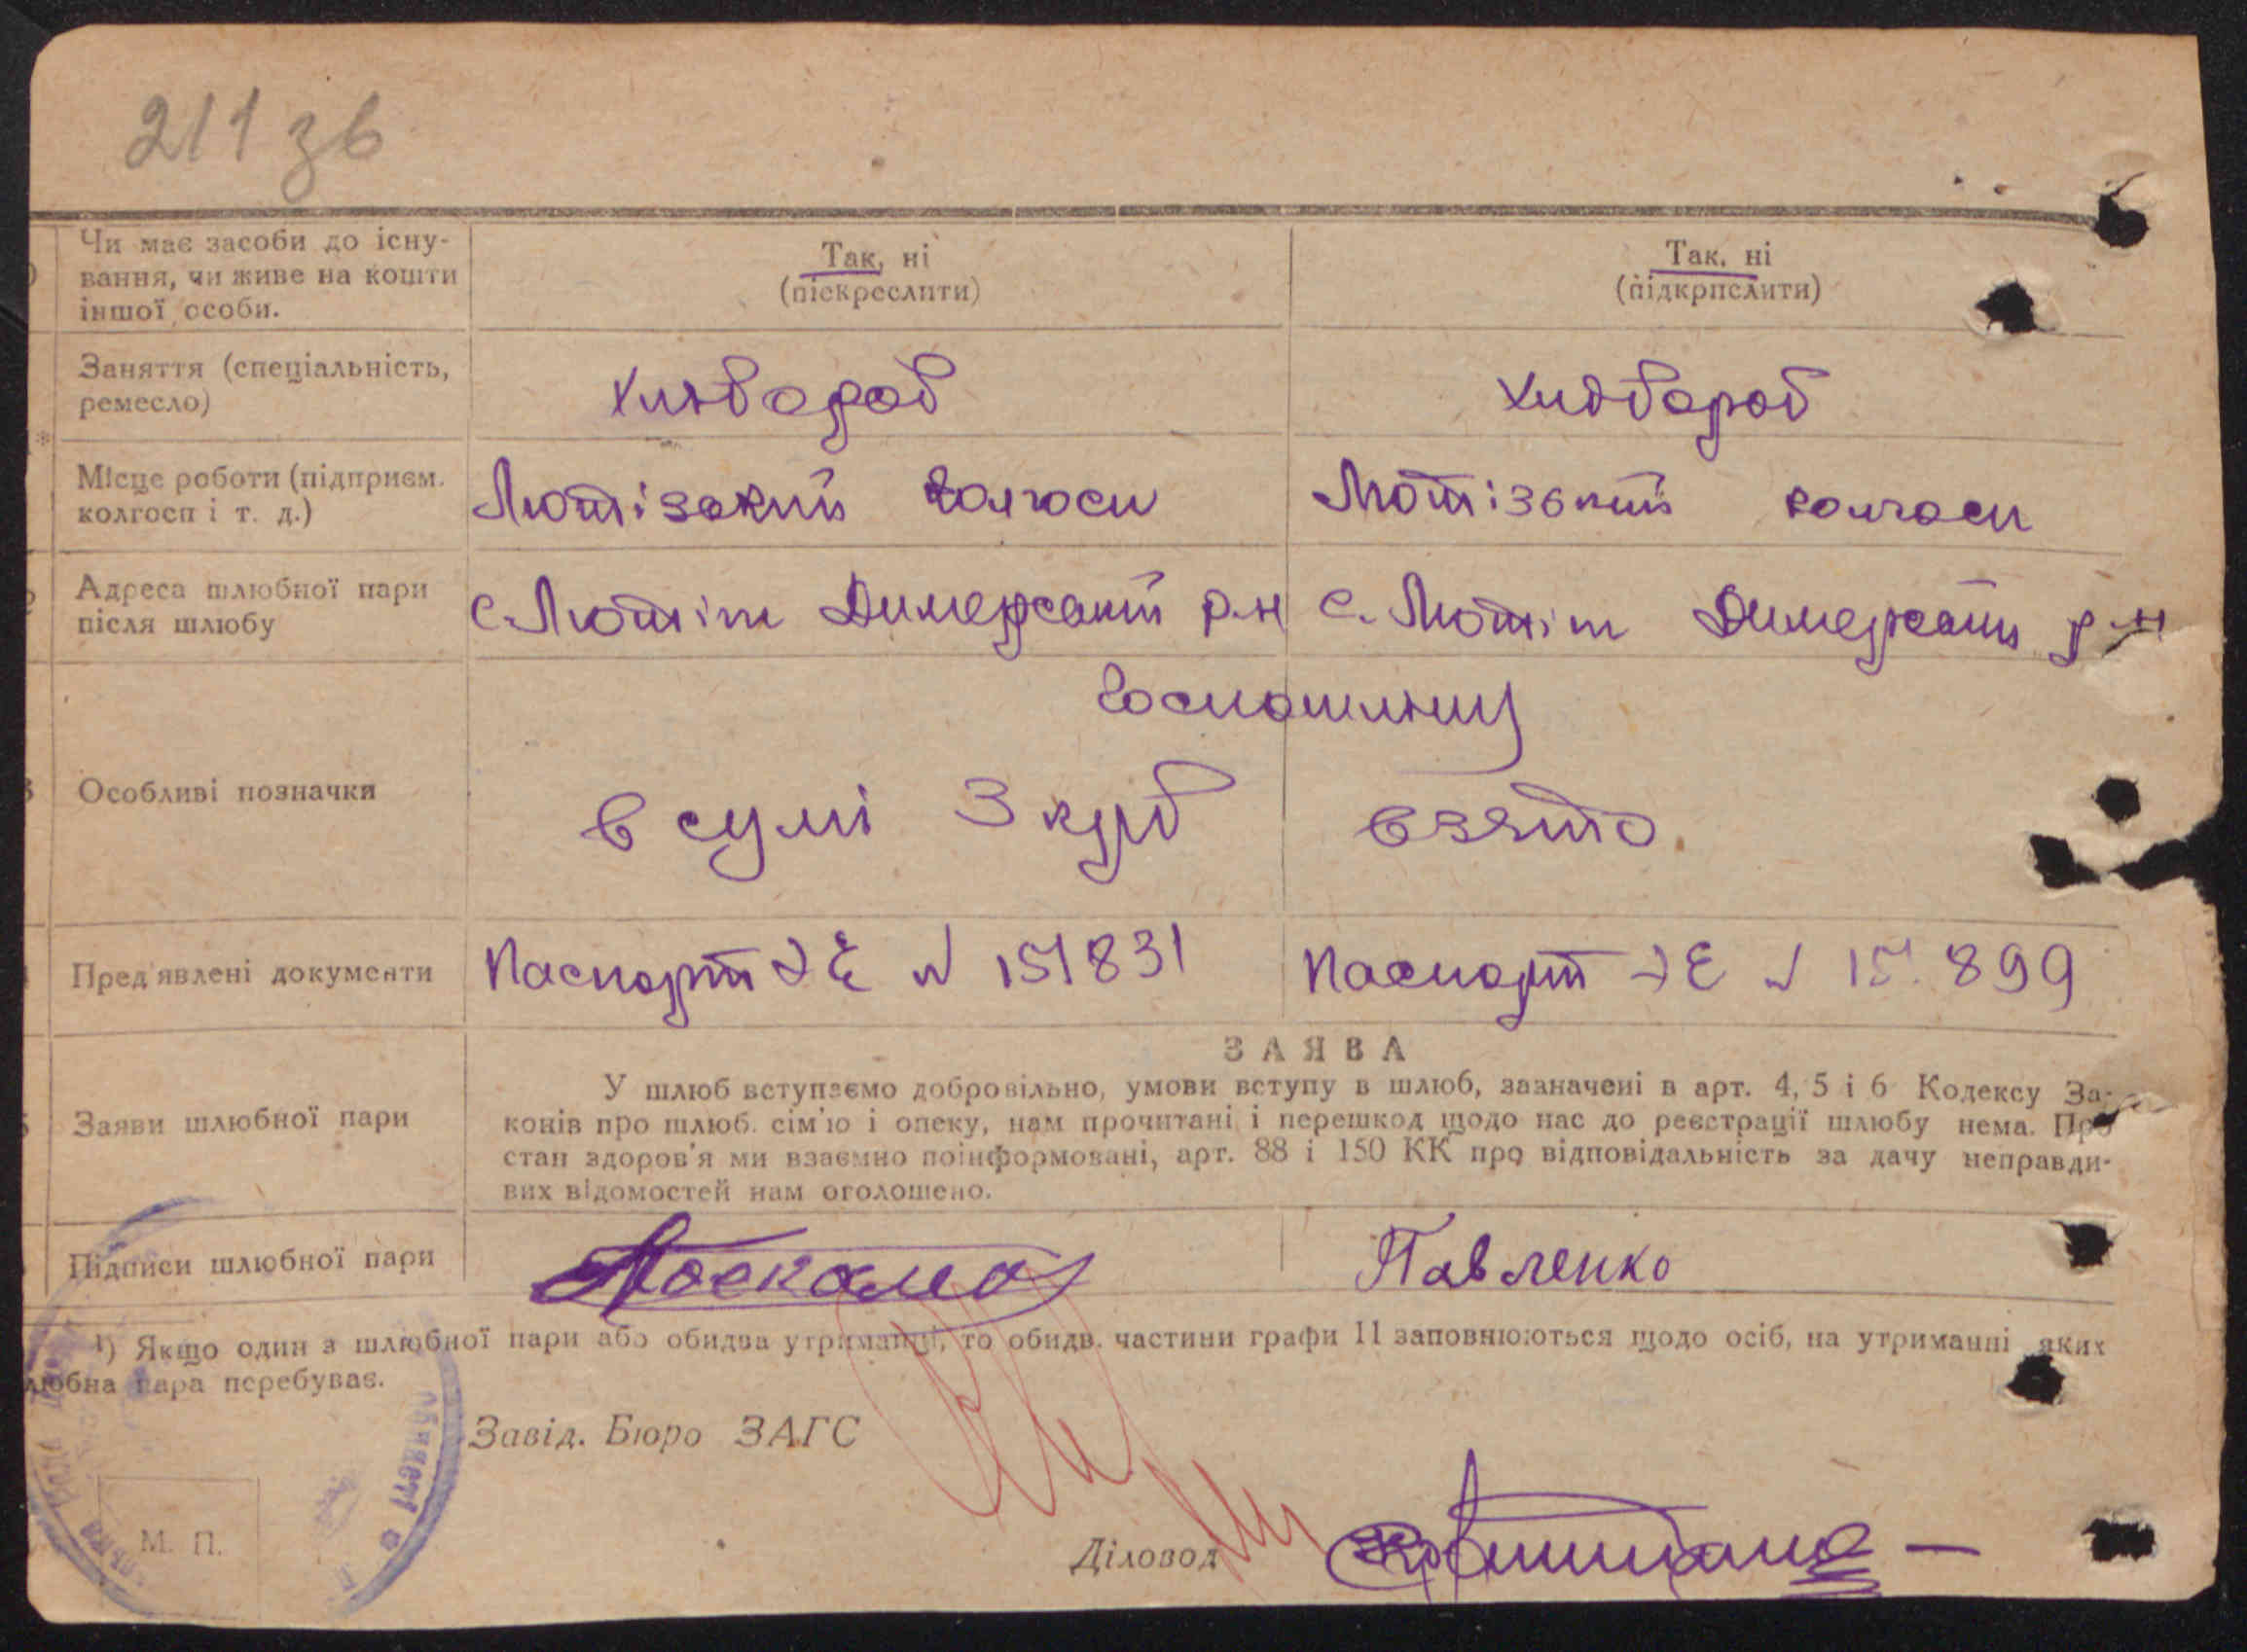 211 зв
Чи має засоби до існу-
вання, чи живе на кошти
іншої особи.
Так, ні
(піскреслити)
Так, ні
(підкрпслити)
Заняття (спеціальність,
ремесло)
Хлібороб
Хлібороб
Місце роботи (підприєм.
колгосп і т. д.)
Лютізький колгосп
Лютізький колгосп
Адреса шлюбної пари
після шлюбу
с. Лютіж Димерський р-н
с. Лютіж Димерський р-н
Особливі позначки
Госпошлину
в сумі 3 крб взято.
Пред'явлені документи
Паспорт № 151831
Паспорт № 899
ЗАЯВА
Заяви шлюбної пари
У шлюб вступаємо добровільно, умови вступу в шлюб, зазначені в арт. 4, 5 і 6 Кодексу За-
конів про шлюб. сім'ю і опеку, нам прочитані і перешкод щодо нас до реєстрації шлюбу нема. Про
стан здоров'я ми взаємно поінформовані, арт. 88 і 150 КК про відповідальність за дачу неправди-
вих відомостей нам оголошено.
Підписи шлюбної пари
Павленко
¹) Якщо один з шлюбної пари або обидва утриманці, то обидв. частини графи 11 заповнюються щодо осіб, на утриманні яких
любна пара перебуває.
Завід. Бюро ЗАГС
М. П.
Діловод